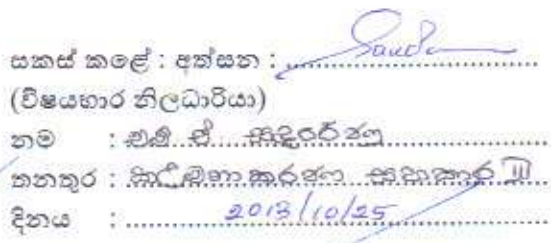 සකස් කළේ : අත්සන :
(විෂයභාර නිලධාරියා)
නම : එම් ඒ
තනතුර : කළමනාකරණ සහකාර III
දිනය : 2013/10/25